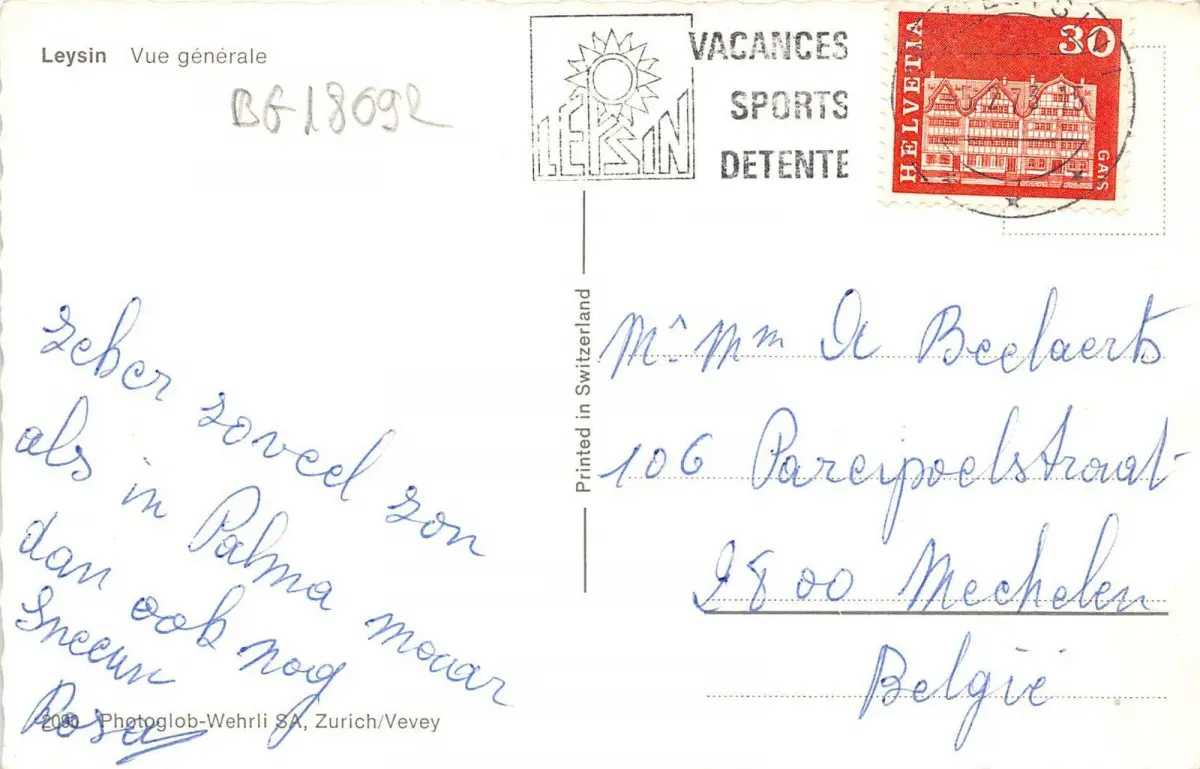 Leysin Vue générale
BG18692
LEYSIN
VACANCES
SPORTS
DETENTE
HELVETIA
30
GAIS
Printed in Switzerland
Zeker zoveel zon
als in Palma maar
dan ook nog
Sneeuw
Rosa
2090 Photoglob-Wehrli SA, Zurich/Vevey
Mr Mm De Beelaerts
106 Pareipoelstraat
2800 Mechelen
België